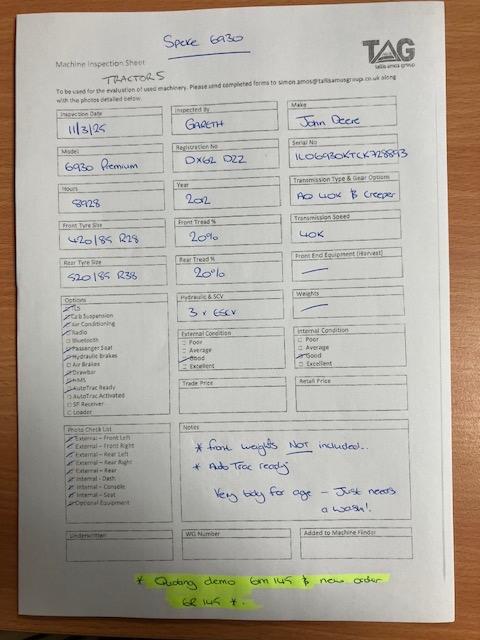 Speke 6930
Machine Inspection Sheet
TAG
tallis amos group
TRACTORS
To be used for the evaluation of used machinery. Please send completed forms to simon.amos@tallisamosgroup.co.uk along
with the photos detailed below.
Inspection Date
11/3/25
Inspected By
GARETH
Make
John Deere
Model
6930 Premium
Registration No
DX62 DZZ
Serial No
Transmission Type & Gear Options
AQ 40K & Creeper
Hours
8928
Year
2012
Transmission Speed
40K
Front Tyre Size
420/85 R28
Front Tread %
20%
Front End Equipment (Harvest)
—
Rear Tyre Size
520/85 R38
Rear Tread %
20%
Weights
—
Options
TLS
Cab Suspension
Air Conditioning
Radio
Bluetooth
Passenger Seat
Hydraulic Brakes
Air Brakes
Drawbar
HMS
AutoTrac Ready
AutoTrac Activated
SF Receiver
Loader
Hydraulic & SCV
3 x ESCV
External Condition
Poor
Average
Good
Excellent
Internal Condition
Poor
Average
Good
Excellent
Trade Price
Retail Price
Photo Check List
External – Front Left
External – Front Right
External – Rear Left
External – Rear Right
External – Rear
Internal - Dash
Internal – Console
Internal – Seat
Optional Equipment
Notes
* front weights NOT included..
* AutoTrac ready
Very tidy for age – Just needs
a wash!.
Underwritten
WG Number
Added to Machine Finder
* Quoting demo 6M 145 & new order
6R 145 *.